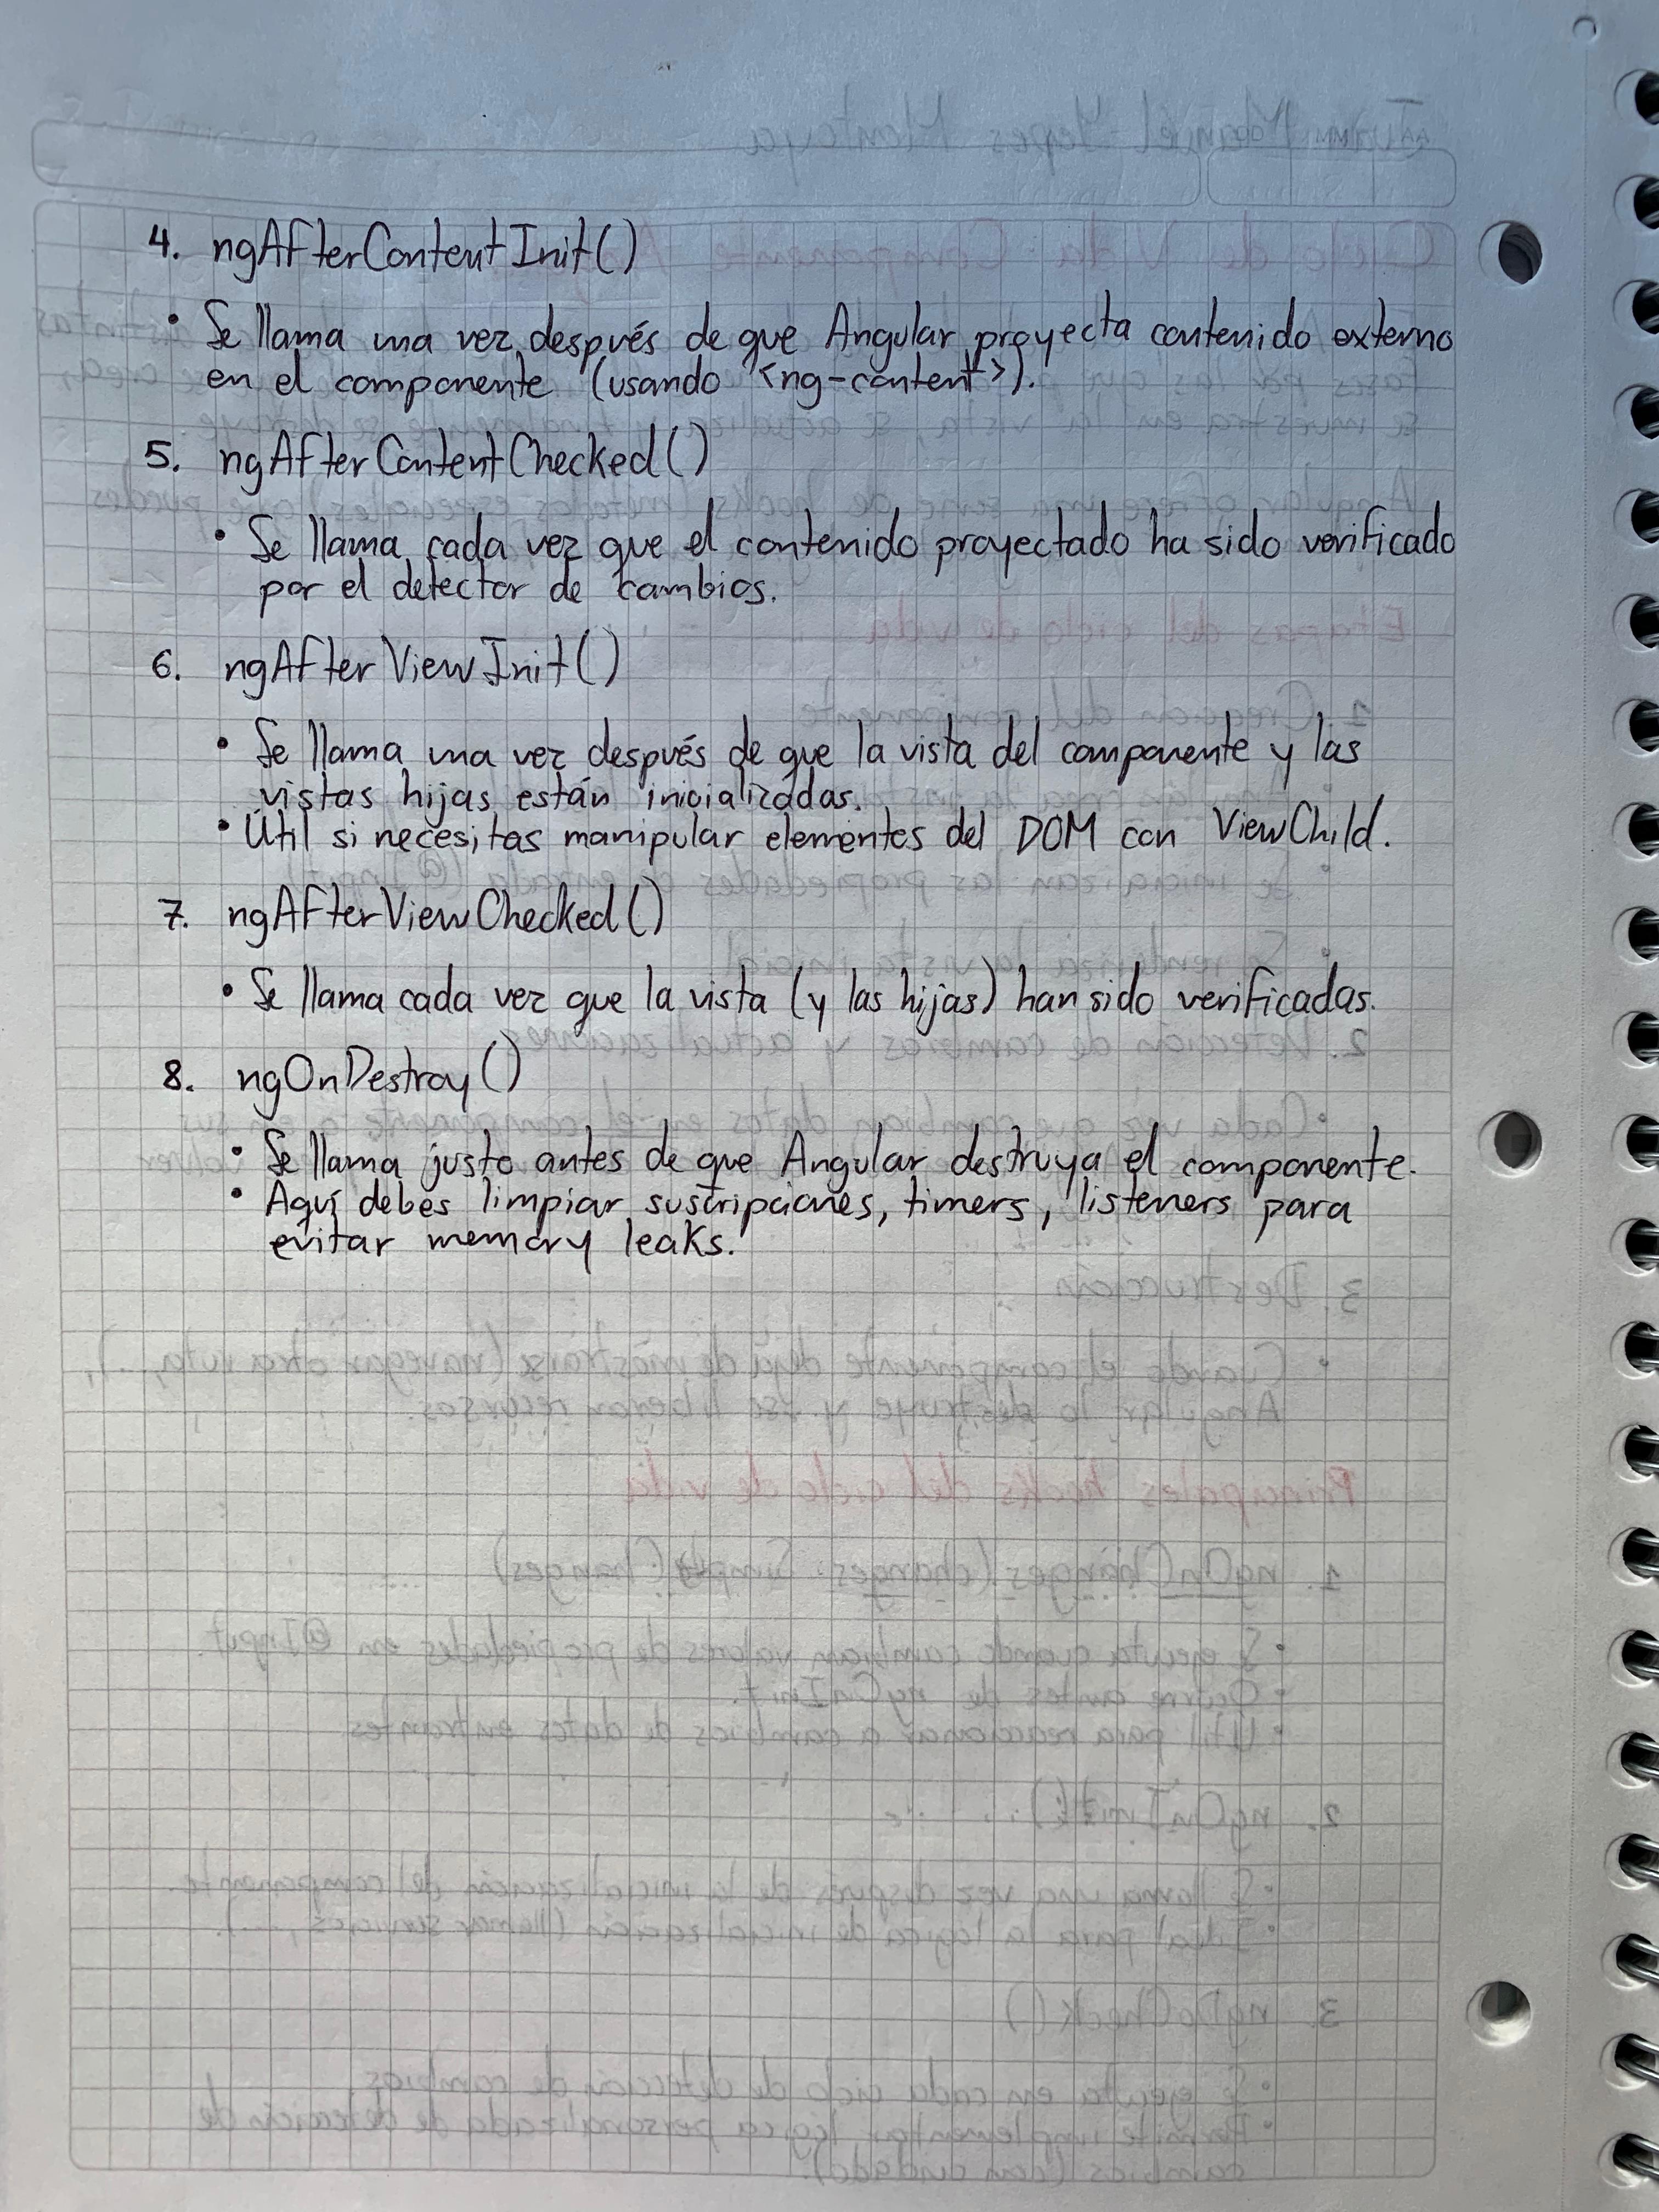 4. ngAfterContentInit()
• Se llama una vez después de que Angular proyecta contenido externo
en el componente (usando <ng-content>).
5. ngAfterContentChecked()
• Se llama cada vez que el contenido proyectado ha sido verificado
por el detector de cambios.
6. ngAfterViewInit()
• Se llama una vez después de que la vista del componente y las
vistas hijas están inicializadas.
• Útil si necesitas manipular elementos del DOM con ViewChild.
7. ngAfterViewChecked()
• Se llama cada vez que la vista (y las hijas) han sido verificadas.
8. ngOnDestroy()
• Se llama justo antes de que Angular destruya el componente.
• Aquí debes limpiar suscripciones, timers, listeners para
evitar memory leaks.